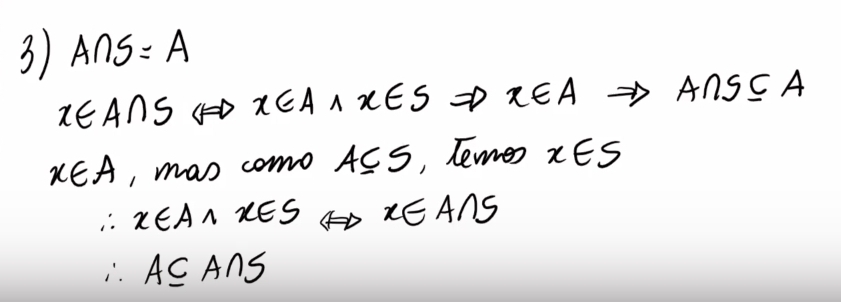 3) A∩S = A
x∈A∩S ⇔ x∈A ∧ x∈S ⇒ x∈A ⇒ A∩S ⊆ A
x∈A, mas como A⊆S, temos x∈S
∴ x∈A ∧ x∈S ⇔ x∈A∩S
∴ A⊆ A∩S